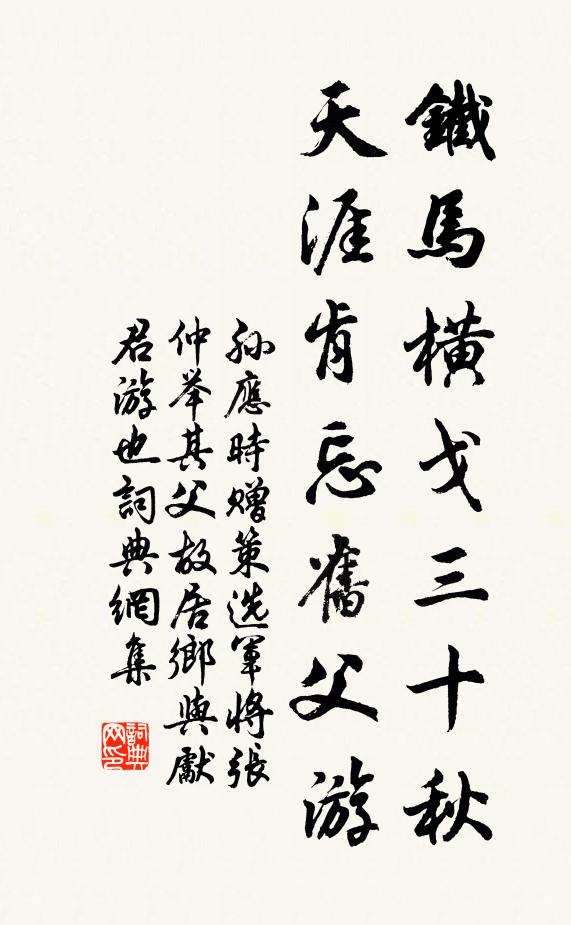 鐵馬橫戈三十秋
天涯肯忘舊父游
孙應時赠策选軍将張
仲举其父故居鄉與獻
君游也詞典網集
詞典网印